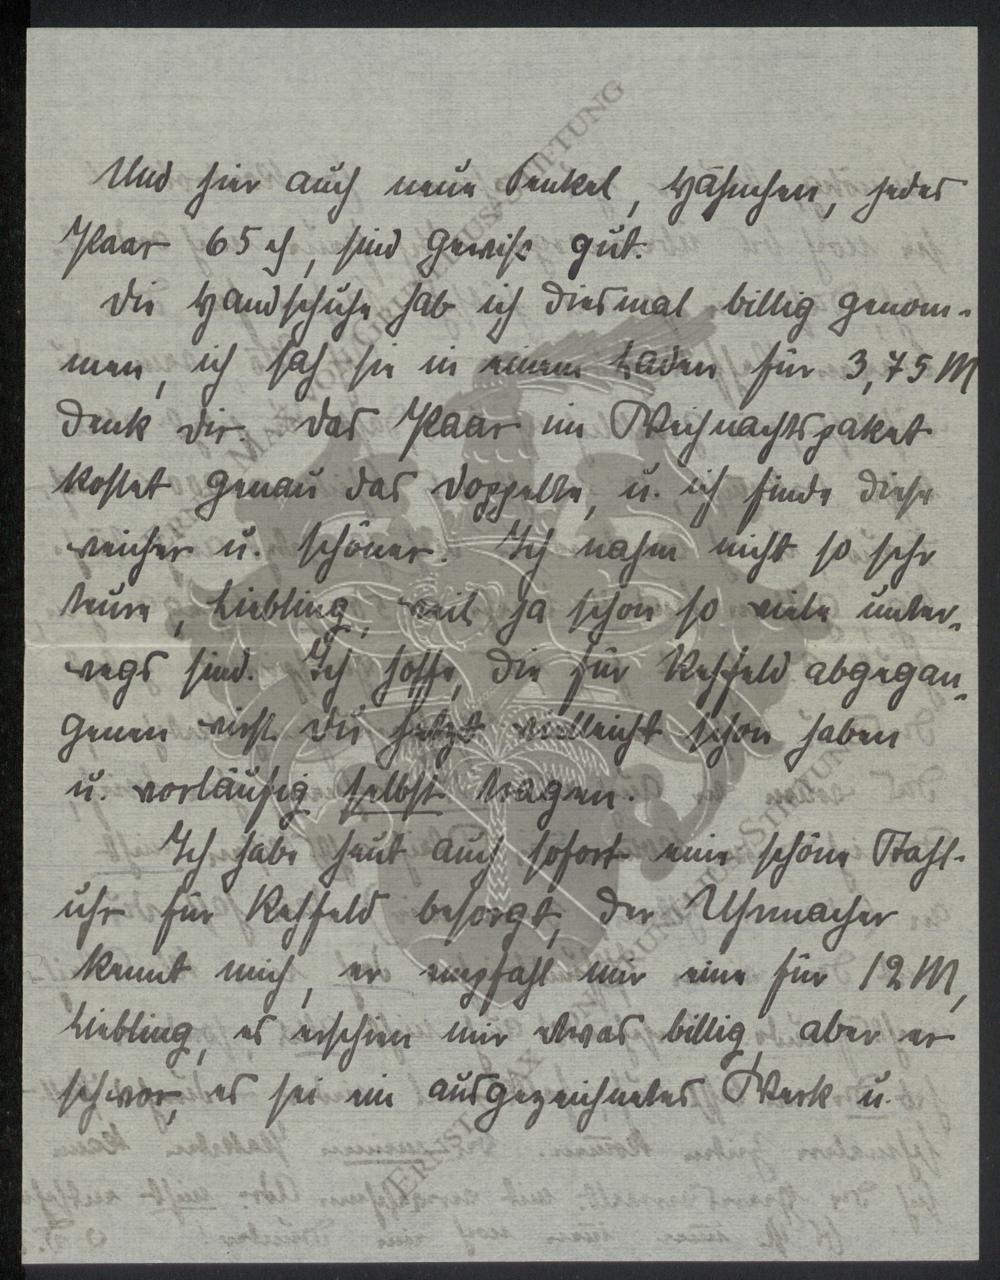 Und hier auch neue Senkel, Hähnchen, jedes
Paar 65 ₰, sind gewiß gut.
Die Handschuhe hab ich diesmal billig genom-
men, ich sah sie in einem Laden für 3,75 M
denk dir. Das Paar im Weihnachtspaket
kostet genau das doppelte, u. ich finde diese
weicher u. schöner. Ich nahm nicht so sehr
teure, Liebling, weil ja schon so viele unter-
wegs sind. Ich hoffe, die für Rehfeld abgegan-
genen wirst du jetzt vielleicht schon haben
u. vorläufig selbst tragen.
Ich habe heut auch sofort eine schöne Stahl-
uhr für Rehfeld besorgt, der Uhrmacher
kennt mich, er empfahl mir eine für 12 M,
Liebling, es erschien mir etwas billig, aber er
schwor, es sei ein ausgezeichnetes Werk u.